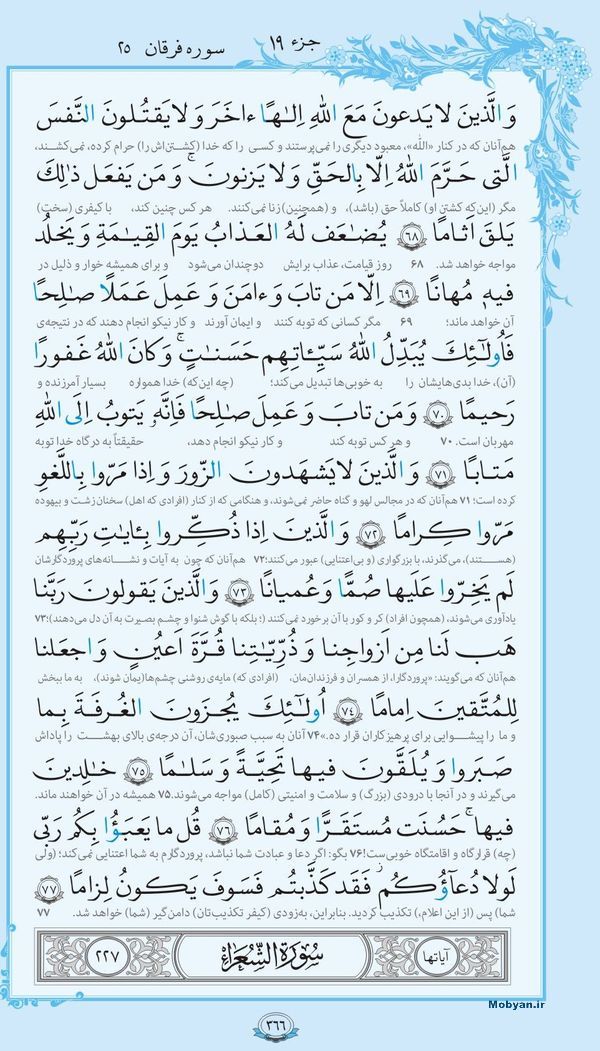 جزء ۱۹
سوره فرقان ۲۵
وَ الَّذينَ لا يَدعونَ مَعَ اللهِ اِلـٰهًا ءاخَرَ وَ لا يَقتُلونَ النَّفسَ
هم‌آنان که در کنار «الله»، معبود دیگری را نمی‌پرستند و کسی را که خدا (کشتن‌اش را) حرام کرده، نمی‌کشند،
الَّتى حَرَّمَ اللهُ اِلّا بِالحَقِّ وَ لا يَزنونَ ۚ وَ مَن يَفعَل ذٰلِكَ
مگر (این‌که کشتن او) کاملاً حق (باشد)، و (همچنین) زنا نمی‌کنند. هر کس چنین کند، با کیفری (سخت)
يَلقَ اَثامًا ﴿۶۸﴾ يُضٰعَف لَهُ العَذابُ يَومَ القِيٰمَةِ وَ يَخلُد
مواجه خواهد شد. ۶۸ روز قیامت، عذاب برایش دوچندان می‌شود و برای همیشه خوار و ذلیل در
فيهِ مُهانًا ﴿۶۹﴾ اِلّا مَن تابَ وَ ءامَنَ وَ عَمِلَ عَمَلًا صٰلِحًا
آن خواهد ماند؛ ۶۹ مگر کسانی که توبه کنند و ایمان آورند و کار نیکو انجام دهند که در نتیجه‌ی
فَاُولٰئِكَ يُبَدِّلُ اللهُ سَيِّـٔاتِهِم حَسَنٰتٍ ۗ وَ كانَ اللهُ غَفورًا
(آن)، خدا بدی‌هایشان را به خوبی‌ها تبدیل می‌کند؛ (چه این‌که) خدا همواره بسیار آمرزنده و
رَحيمًا ﴿۷۰﴾ وَ مَن تابَ وَ عَمِلَ صٰلِحًا فَاِنَّهٗ يَتوبُ اِلَى اللهِ
مهربان است. ۷۰ و هر کس توبه کند و کار نیکو انجام دهد، حقیقتاً به درگاه خدا توبه
مَتابًا ﴿۷۱﴾ وَ الَّذينَ لا يَشهَدونَ الزّورَ وَ اِذا مَرّوا بِاللَّغوِ
کرده است؛ ۷۱ هم‌آنان که در مجالس لهو و گناه حاضر نمی‌شوند، و هنگامی که از کنار (افرادی که اهل) سخنان زشت و بیهوده
مَرّوا كِرامًا ﴿۷۲﴾ وَ الَّذينَ اِذا ذُكِّروا بِـٔايٰتِ رَبِّهِم
(هستند)، می‌گذرند، با بزرگواری (و بی‌اعتنایی) عبور می‌کنند؛ ۷۲ هم‌آنان که چون به آیات و نشانه‌های پروردگارشان
لَم يَخِرّوا عَلَيها صُمًّا وَ عُميانًا ﴿۷۳﴾ وَ الَّذينَ يَقولونَ رَبَّنا
یادآوری می‌شوند، (همچون افراد) کر و کور با آن برخورد نمی‌کنند (؛ بلکه با گوش شنوا و چشم بصیرت به آن دل می‌دهند)؛ ۷۳
هَب لَنا مِن اَزواجِنا وَ ذُرِّيّٰتِنا قُرَّةَ اَعيُنٍ وَ اجعَلنا
هم‌آنان که می‌گویند: «پروردگارا، از همسران و فرزندان‌مان، (افرادی که) مایه‌ی روشنی چشم‌ها (یمان شوند)، به ما ببخش
لِلمُتَّقينَ اِمامًا ﴿۷۴﴾ اُولٰئِكَ يُجزَونَ الغُرفَةَ بِما
و ما را پیشوایی برای پرهیزکاران قرار ده.» ۷۴ آنان به سبب صبوری‌شان، آن درجه‌ی بالای بهشت را پاداش
صَبَروا وَ يُلَقَّونَ فيها تَحِيَّةً وَ سَلٰمًا ﴿۷۵﴾ خٰلِدينَ
می‌گیرند و در آنجا با درودی (بزرگ) و سلامت و امنیتی (کامل) مواجه می‌شوند. ۷۵ همیشه در آن خواهند ماند.
فيها ۚ حَسُنَت مُستَقَرًّا وَ مُقامًا ﴿۷۶﴾ قُل ما يَعبَؤُا بِكُم رَبّى
(چه) قرارگاه و اقامتگاه خوبی‌ست! ۷۶ بگو: اگر دعا و عبادت شما نباشد، پروردگارم به شما اعتنایی نمی‌کند؛ (ولی
لَولا دُعآؤُكُم ۖ فَقَد كَذَّبتُم فَسَوفَ يَكونُ لِزامًا ﴿۷۷﴾
شما) پس (از این اعلام،) تکذیب کردید. بنابراین، به‌زودی (کیفر تکذیب‌تان) دامن‌گیر (شما) خواهد شد. ۷۷
آیاتها
سُورَةُ الشُّعَرَاءِ
۲۲۷
Mobyan.ir
۳۶۶